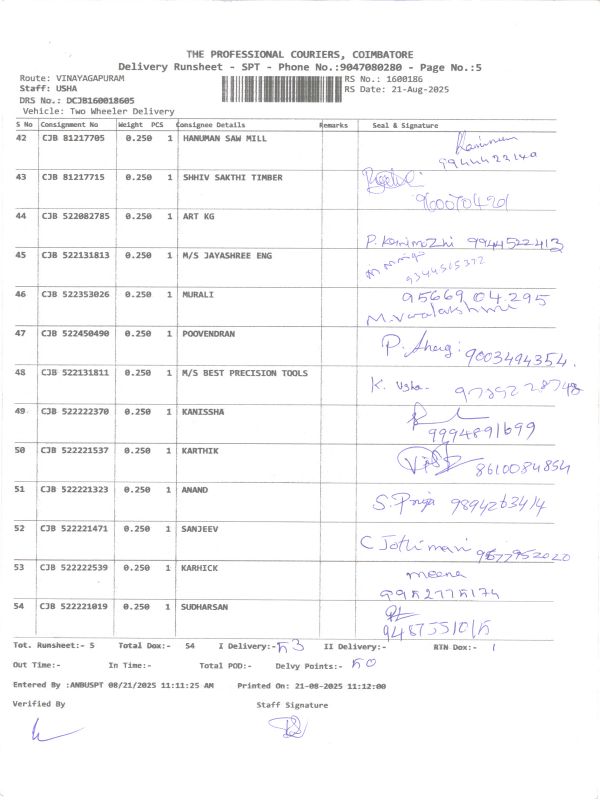 THE PROFESSIONAL COURIERS, COIMBATORE
Delivery Runsheet - SPT - Phone No.:9047080280 - Page No.:5
Route: VINAYAGAPURAM RS No.: 1600186
Staff: USHA RS Date: 21-Aug-2025
DRS No.: DCJB160018605
Vehicle: Two Wheeler Delivery
S No Consignment No Weight PCS Consignee Details Remarks Seal & Signature
42 CJB 81217705 0.250 1 HANUMAN SAW MILL
9944423140
43 CJB 81217715 0.250 1 SHHIV SAKTHI TIMBER
9600070420
44 CJB 522082785 0.250 1 ART KG
P. Kanimozhi 9944522413
45 CJB 522131813 0.250 1 M/S JAYASHREE ENG
9344565372
46 CJB 522353026 0.250 1 MURALI 95669 04295
M. Varalakshmi
47 CJB 522450490 0.250 1 POOVENDRAN
9003494354.
48 CJB 522131811 0.250 1 M/S BEST PRECISION TOOLS
K. Usha. 97892 28748
49 CJB 522222370 0.250 1 KANISSHA
9994891699
50 CJB 522221537 0.250 1 KARTHIK
8610084854
51 CJB 522221323 0.250 1 ANAND
S. Priya 9894263414
52 CJB 522221471 0.250 1 SANJEEV
C Jothimani 9677952020
53 CJB 522222539 0.250 1 KARHICK meena
9952775174
54 CJB 522221019 0.250 1 SUDHARSAN
9487551015
Tot. Runsheet:- 5 Total Dox:- 54 I Delivery:- 53 II Delivery:- RTN Dox:- 1
Out Time:- In Time:- Total POD:- Delvy Points:- 50
Entered By :ANBUSPT 08/21/2025 11:11:25 AM Printed On: 21-08-2025 11:12:00
Verified By Staff Signature